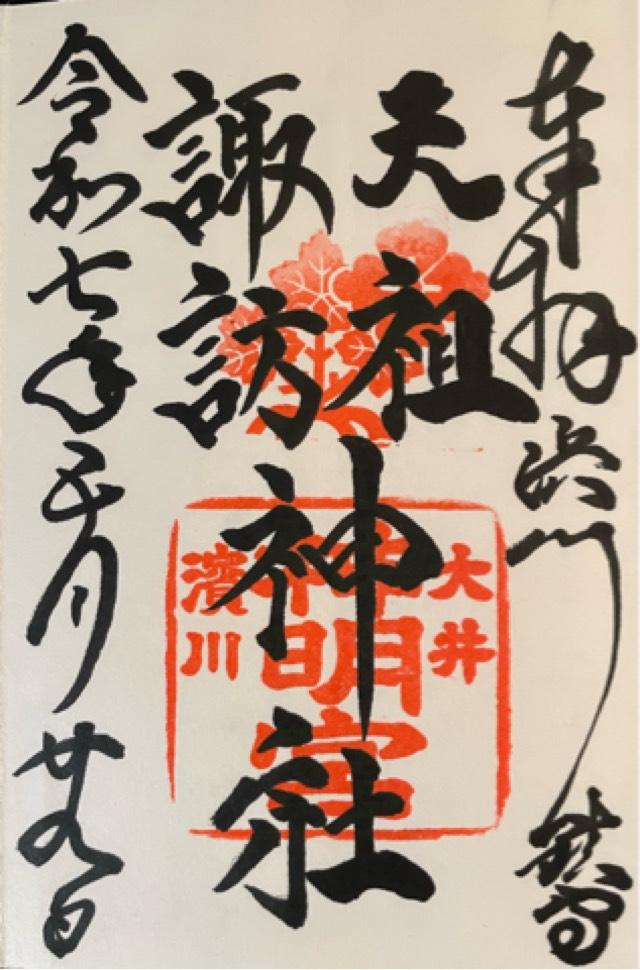 奉拝 浜川 鎮守
天祖
諏訪
神社
令和七年五月廿九日
大井
神明宮
濱川